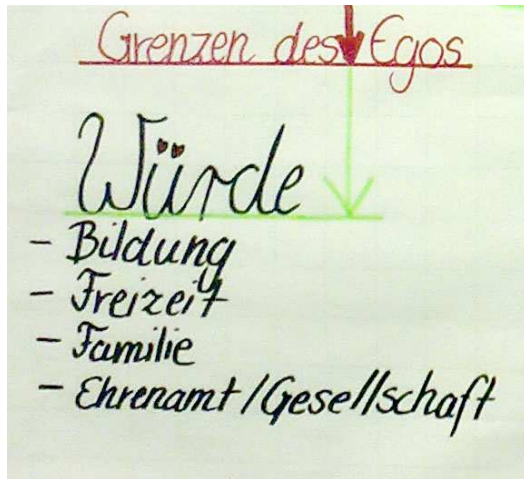 Grenzen des Egos
Würde
- Bildung
- Freizeit
- Familie
- Ehrenamt/Gesellschaft